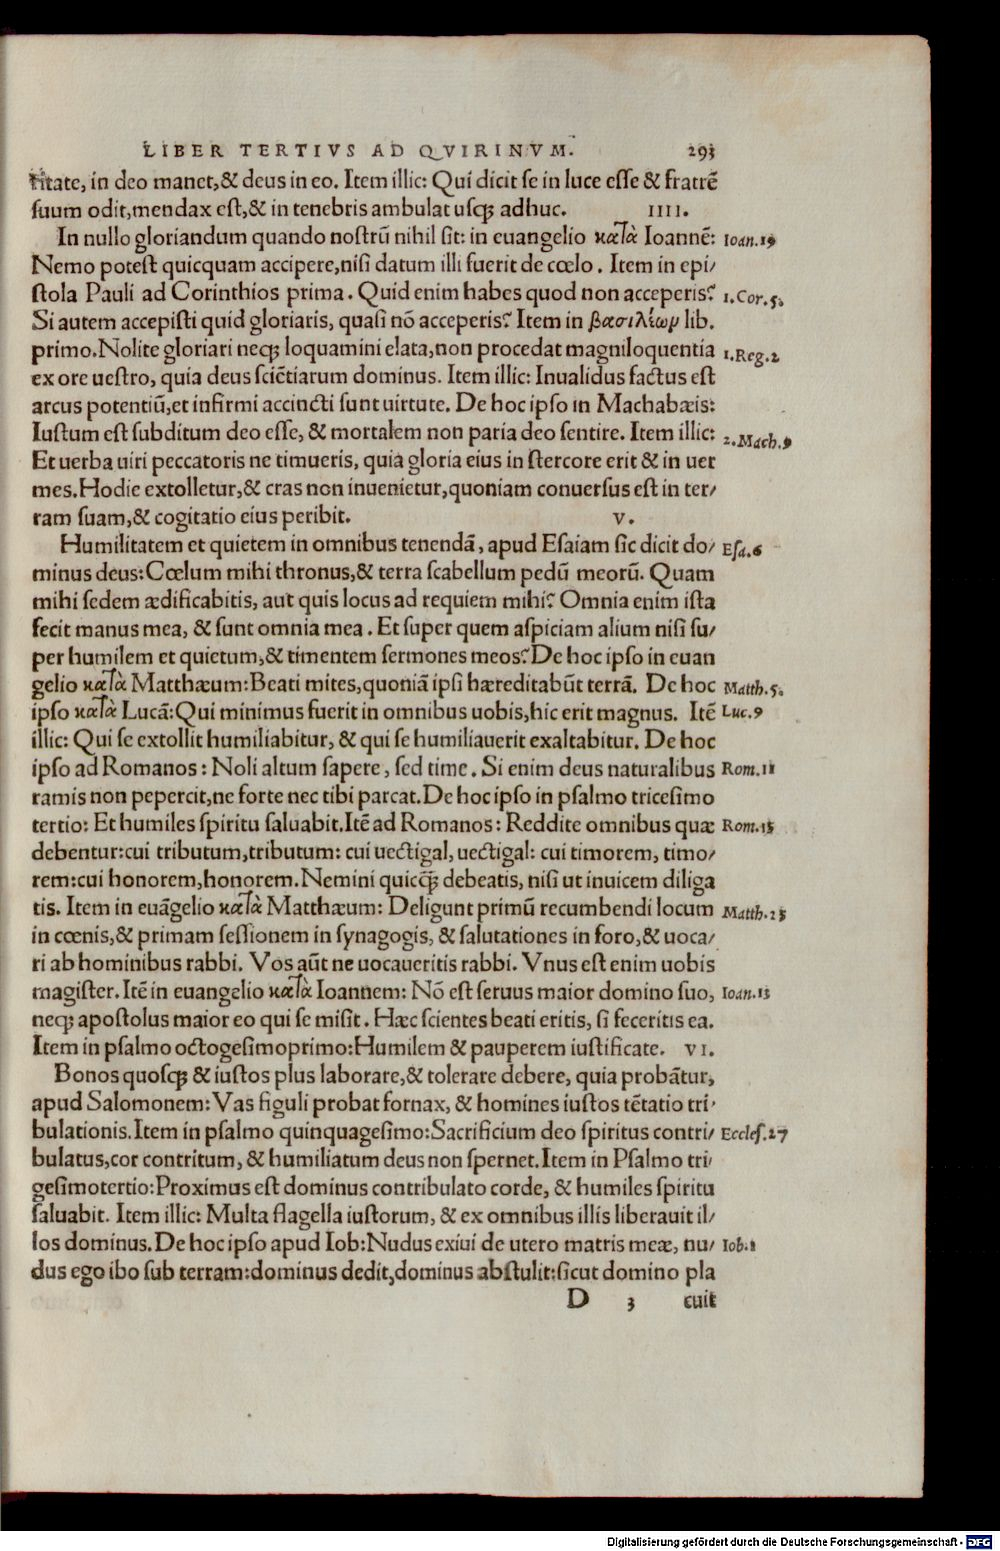 LIBER TERTIVS AD QVIRINVM. 293
ritate, in deo manet,& deus in eo. Item illic: Qui dicit se in luce esse & fratrē
suum odit,mendax est,& in tenebris ambulat usq; adhuc. IIII.
In nullo gloriandum quando nostrū nihil sit: in euangelio κατὰ Ioannē: Ioan.19
Nemo potest quicquam accipere,nisi datum illi fuerit de cœlo. Item in epi/
stola Pauli ad Corinthios prima. Quid enim habes quod non acceperis? 1.Cor.5.
Si autem accepisti quid gloriaris, quasi nō acceperis? Item in βασιλείων lib.
primo.Nolite gloriari neq; loquamini elata,non procedat magniloquentia 1.Reg.2
ex ore uestro, quia deus sciētiarum dominus. Item illic: Inualidus factus est
arcus potentiū,et infirmi accincti sunt uirtute. De hoc ipso in Machabæis:
Iustum est subditum deo esse, & mortalem non paria deo sentire. Item illic: 2.Mach.9
Et uerba uiri peccatoris ne timueris, quia gloria eius in stercore erit & in uer
mes.Hodie extolletur,& cras non inuenietur,quoniam conuersus est in ter/
ram suam,& cogitatio eius peribit. V.
Humilitatem et quietem in omnibus tenendā, apud Esaiam sic dicit do/ Esa.6
minus deus:Cœlum mihi thronus,& terra scabellum pedū meorū. Quam
mihi sedem ædificabitis, aut quis locus ad requiem mihi? Omnia enim ista
fecit manus mea, & sunt omnia mea. Et super quem aspiciam alium nisi su/
per humilem et quietum,& timentem sermones meos? De hoc ipso in euan
gelio κατὰ Matthæum:Beati mites,quoniā ipsi hæreditabūt terrā. De hoc Matth.5.
ipso κατὰ Lucā:Qui minimus fuerit in omnibus uobis,hic erit magnus. Itē Luc.9
illic: Qui se extollit humiliabitur, & qui se humiliauerit exaltabitur. De hoc
ipso ad Romanos: Noli altum sapere, sed time. Si enim deus naturalibus Rom.11
ramis non pepercit,ne forte nec tibi parcat.De hoc ipso in psalmo tricesimo
tertio: Et humiles spiritu saluabit.Itē ad Romanos: Reddite omnibus quæ Rom.13
debentur:cui tributum,tributum: cui uectigal, uectigal: cui timorem, timo/
rem:cui honorem,honorem.Nemini quicq̄ debeatis, nisi ut inuicem diliga
tis. Item in euāgelio κατὰ Matthæum: Deligunt primū recumbendi locum Matth.23
in cœnis,& primam sessionem in synagogis, & salutationes in foro,& uoca/
ri ab hominibus rabbi. Vos aūt ne uocaueritis rabbi. Vnus est enim uobis
magister.Itē in euangelio κατὰ Ioannem: Nō est seruus maior domino suo, Ioan.13
neq; apostolus maior eo qui se misit. Hæc scientes beati eritis, si feceritis ea.
Item in psalmo octogesimoprimo:Humilem & pauperem iustificate. VI.
Bonos quosq; & iustos plus laborare,& tolerare debere, quia probātur,
apud Salomonem: Vas figuli probat fornax, & homines iustos tētatio tri/
bulationis.Item in psalmo quinquagesimo:Sacrificium deo spiritus contri/ Eccles.27
bulatus,cor contritum, & humiliatum deus non spernet.Item in Psalmo tri/
gesimotertio:Proximus est dominus contribulato corde, & humiles spiritu
saluabit. Item illic: Multa flagella iustorum, & ex omnibus illis liberauit il/
los dominus.De hoc ipso apud Iob:Nudus exiui de utero matris meæ, nu/ Iob.1
dus ego ibo sub terram:dominus dedit,dominus abstulit:sicut domino pla
D 3 cuit
Digitalisierung gefördert durch die Deutsche Forschungsgemeinschaft - DFG